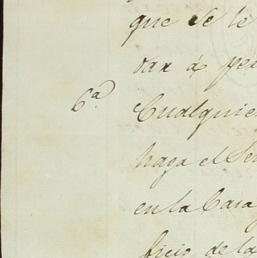 que se le
dar á per
6ª Cualquier
haga el Se
en la Casa
ficio de la